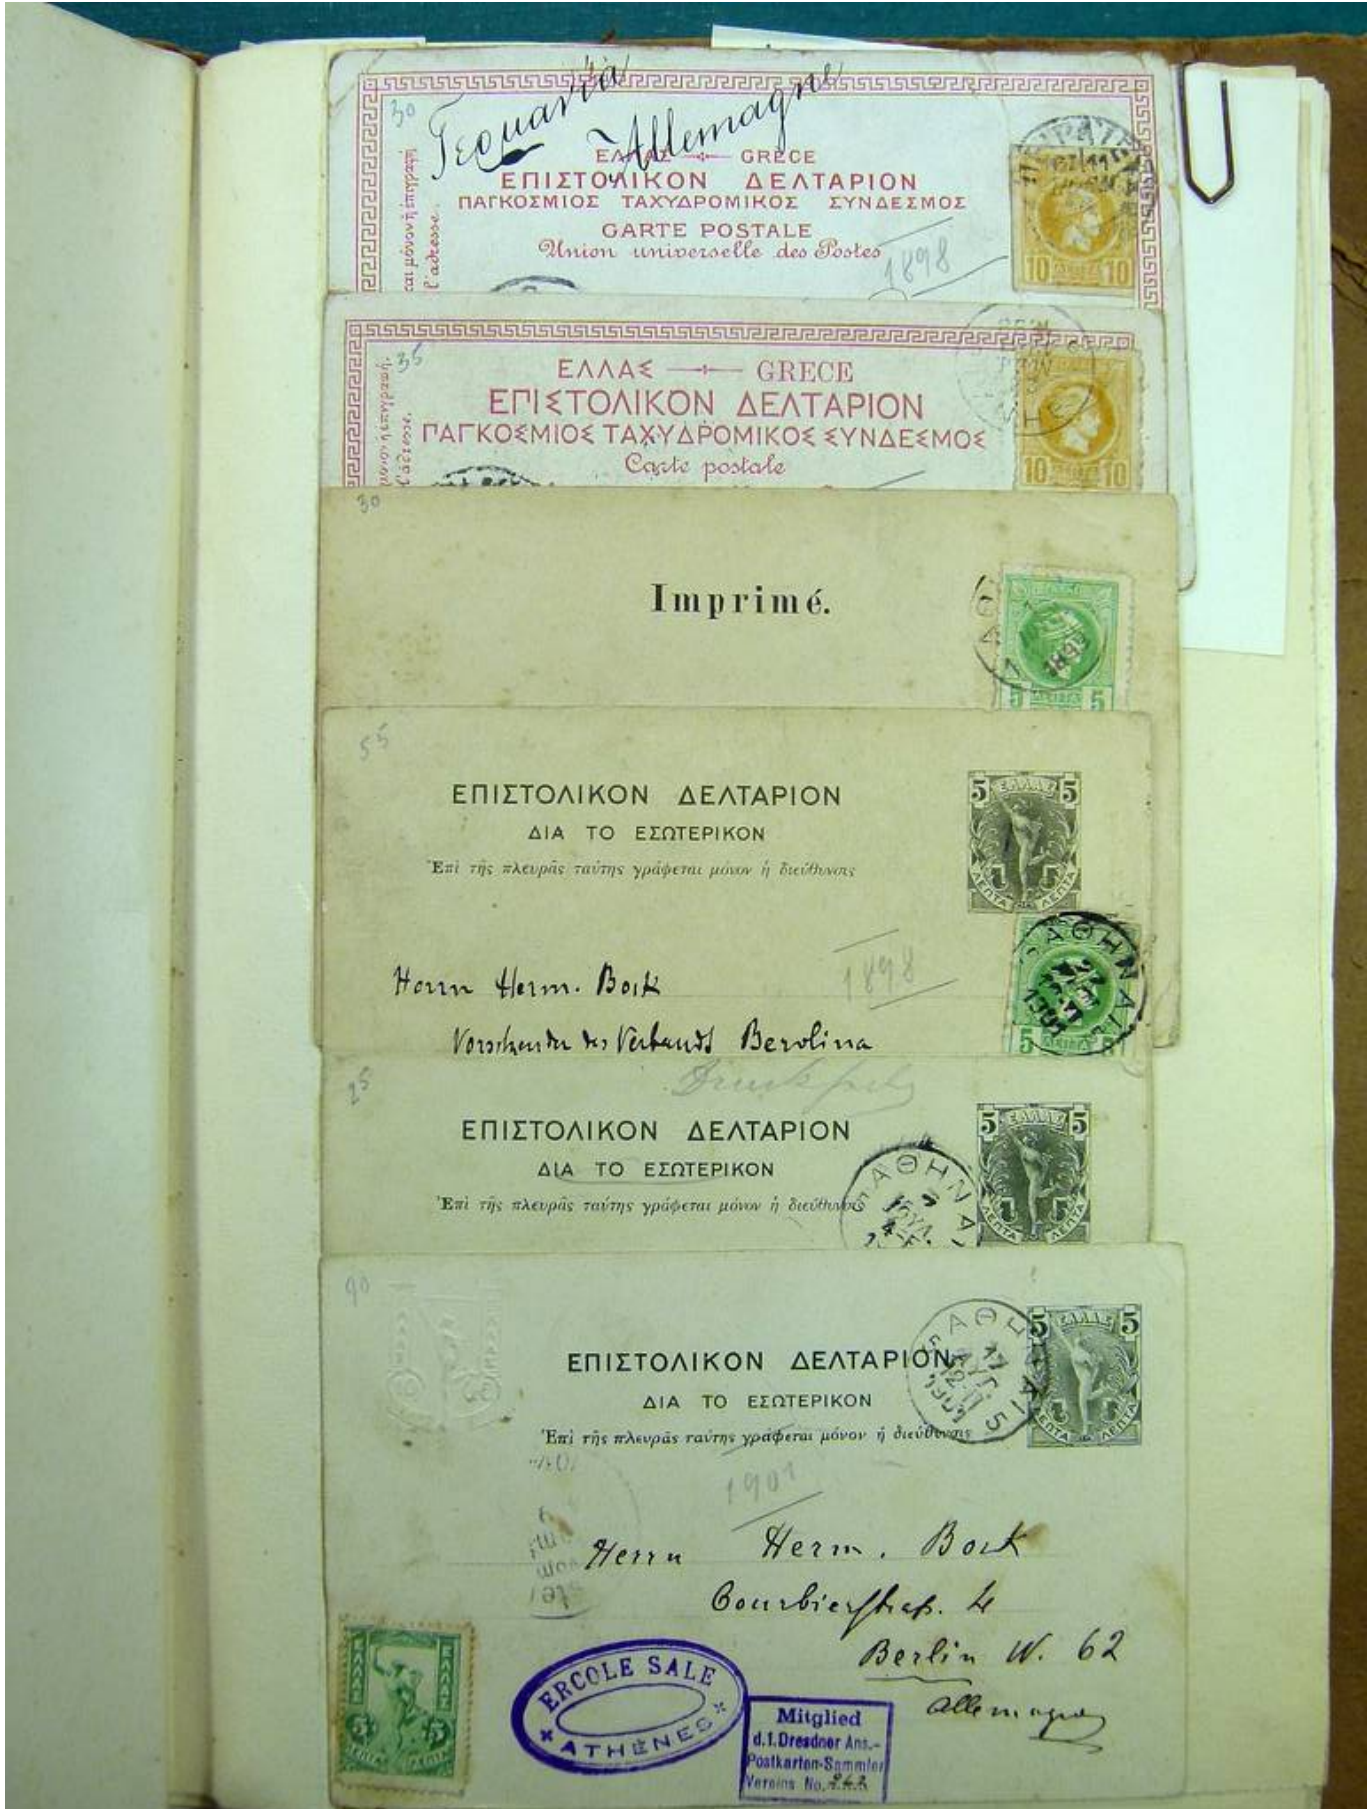 30
Γερμανία
Allemagne
και μόνον ἡ ἐπιγραφή
l'adresse.
ΕΛΛΑΣ GRECE
ΕΠΙΣΤΟΛΙΚΟΝ ΔΕΛΤΑΡΙΟΝ
ΠΑΓΚΟΣΜΙΟΣ ΤΑΧΥΔΡΟΜΙΚΟΣ ΣΥΝΔΕΣΜΟΣ
CARTE POSTALE
Union universelle des Postes
1898
10 10
35
ΕΛΛΑΣ GRECE
ΕΠΙΣΤΟΛΙΚΟΝ ΔΕΛΤΑΡΙΟΝ
ΠΑΓΚΟΣΜΙΟΣ ΤΑΧΥΔΡΟΜΙΚΟΣ ΣΥΝΔΕΣΜΟΣ
Carte postale
l'adresse.
10 10
30
Imprimé.
5 5
55
ΕΠΙΣΤΟΛΙΚΟΝ ΔΕΛΤΑΡΙΟΝ
ΔΙΑ ΤΟ ΕΣΩΤΕΡΙΚΟΝ
Ἐπὶ τῆς πλευρᾶς ταύτης γράφεται μόνον ἡ διεύθυνσις
5 ΕΛΛΑΣ 5
ΛΕΠΤΑ ΛΕΠΤΑ
1898
Herrn Herm. Bock
Vorsitzender des Verbands Berolina
ΑΘΗΝΑΙ
1901
5
25
ΕΠΙΣΤΟΛΙΚΟΝ ΔΕΛΤΑΡΙΟΝ
ΔΙΑ ΤΟ ΕΣΩΤΕΡΙΚΟΝ
Ἐπὶ τῆς πλευρᾶς ταύτης γράφεται μόνον ἡ διεύθυνσις
ΑΘΗΝΑΙ
5 ΕΛΛΑΣ 5
ΛΕΠΤΑ ΛΕΠΤΑ
90
ΕΠΙΣΤΟΛΙΚΟΝ ΔΕΛΤΑΡΙΟΝ
ΔΙΑ ΤΟ ΕΣΩΤΕΡΙΚΟΝ
Ἐπὶ τῆς πλευρᾶς ταύτης γράφεται μόνον ἡ διεύθυνσις
ΑΘΗΝΑΙ 5
17
ΑΥΓ.
1901
5 ΕΛΛΑΣ 5
ΛΕΠΤΑ ΛΕΠΤΑ
1901
Herrn Herm. Bock
Courbierstraß. 4
Berlin W. 62
Allemagne
ΕΛΛΑΣ ΕΛΛΑΣ
5 5
ΛΕΠΤΑ ΛΕΠΤΑ
ERCOLE SALE
ATHÈNES
Mitglied
d.1.Dresdner Ans.-
Postkarten-Sammler
Vereins No. 242